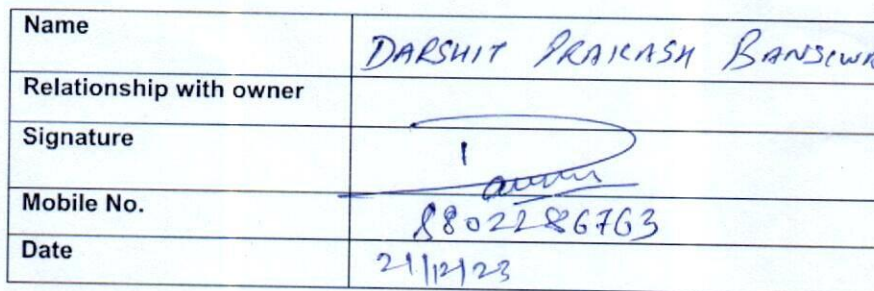 Name DARSHIT PRAKASH BANSIWA
Relationship with owner
Signature
Mobile No. 8802286763
Date 21/12/23